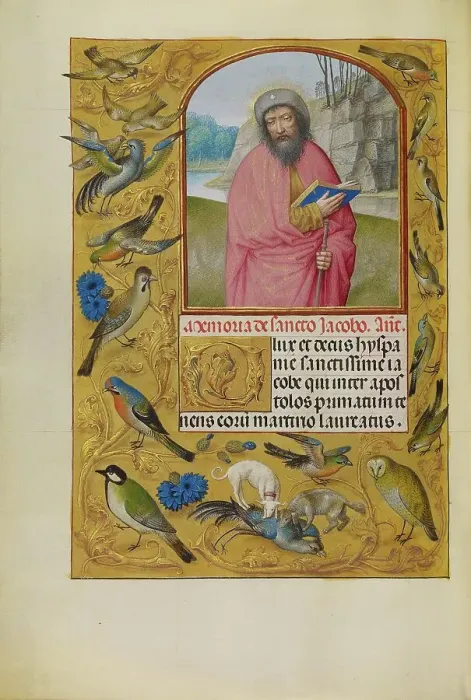 Memoria de sancto Jacobo. Añt.
O lux et decus hyspa
nie sanctissime ia
cobe qui inter apos
tolos primatum te
nens eorū martirio laureatus.